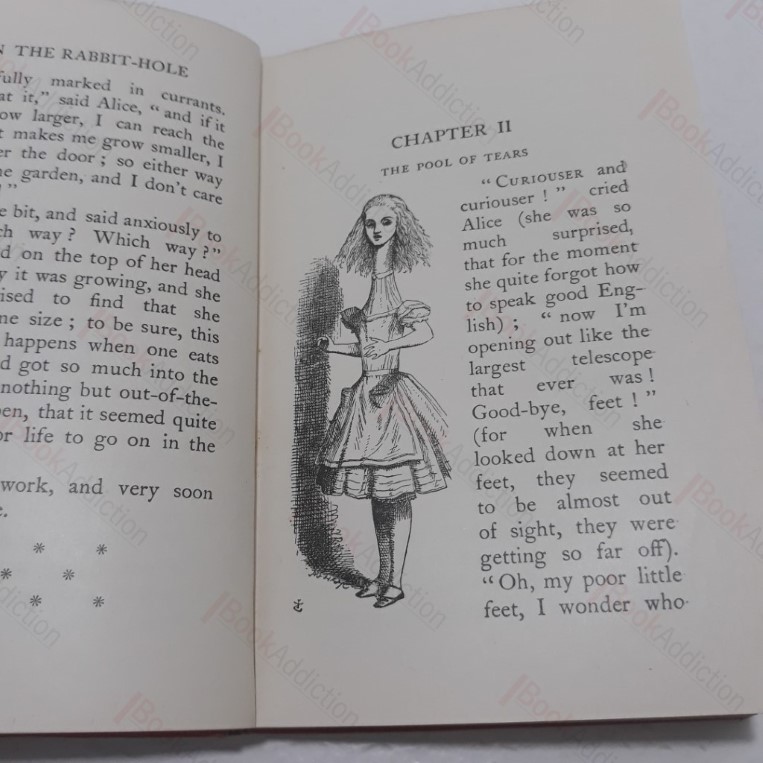 THE RABBIT-HOLE
marked in currants.
it," said Alice, "and if it
larger, I can reach the
makes me grow smaller, I
the door ; so either way
garden, and I don't care
"
bit, and said anxiously to
way ? Which way ? "
on the top of her head
it was growing, and she
to find that she
size ; to be sure, this
happens when one eats
got so much into the
nothing but out-of-the-
that it seemed quite
life to go on in the
work, and very soon
* *
* *
* *
CHAPTER II
THE POOL OF TEARS
"CURIOUSER and
curiouser ! " cried
Alice (she was so
much surprised,
that for the moment
she quite forgot how
to speak good Eng-
lish) ; "now I'm
opening out like the
largest telescope
that ever was !
Good-bye, feet ! "
(for when she
looked down at her
feet, they seemed
to be almost out
of sight, they were
getting so far off).
"Oh, my poor little
feet, I wonder who
BookAddiction